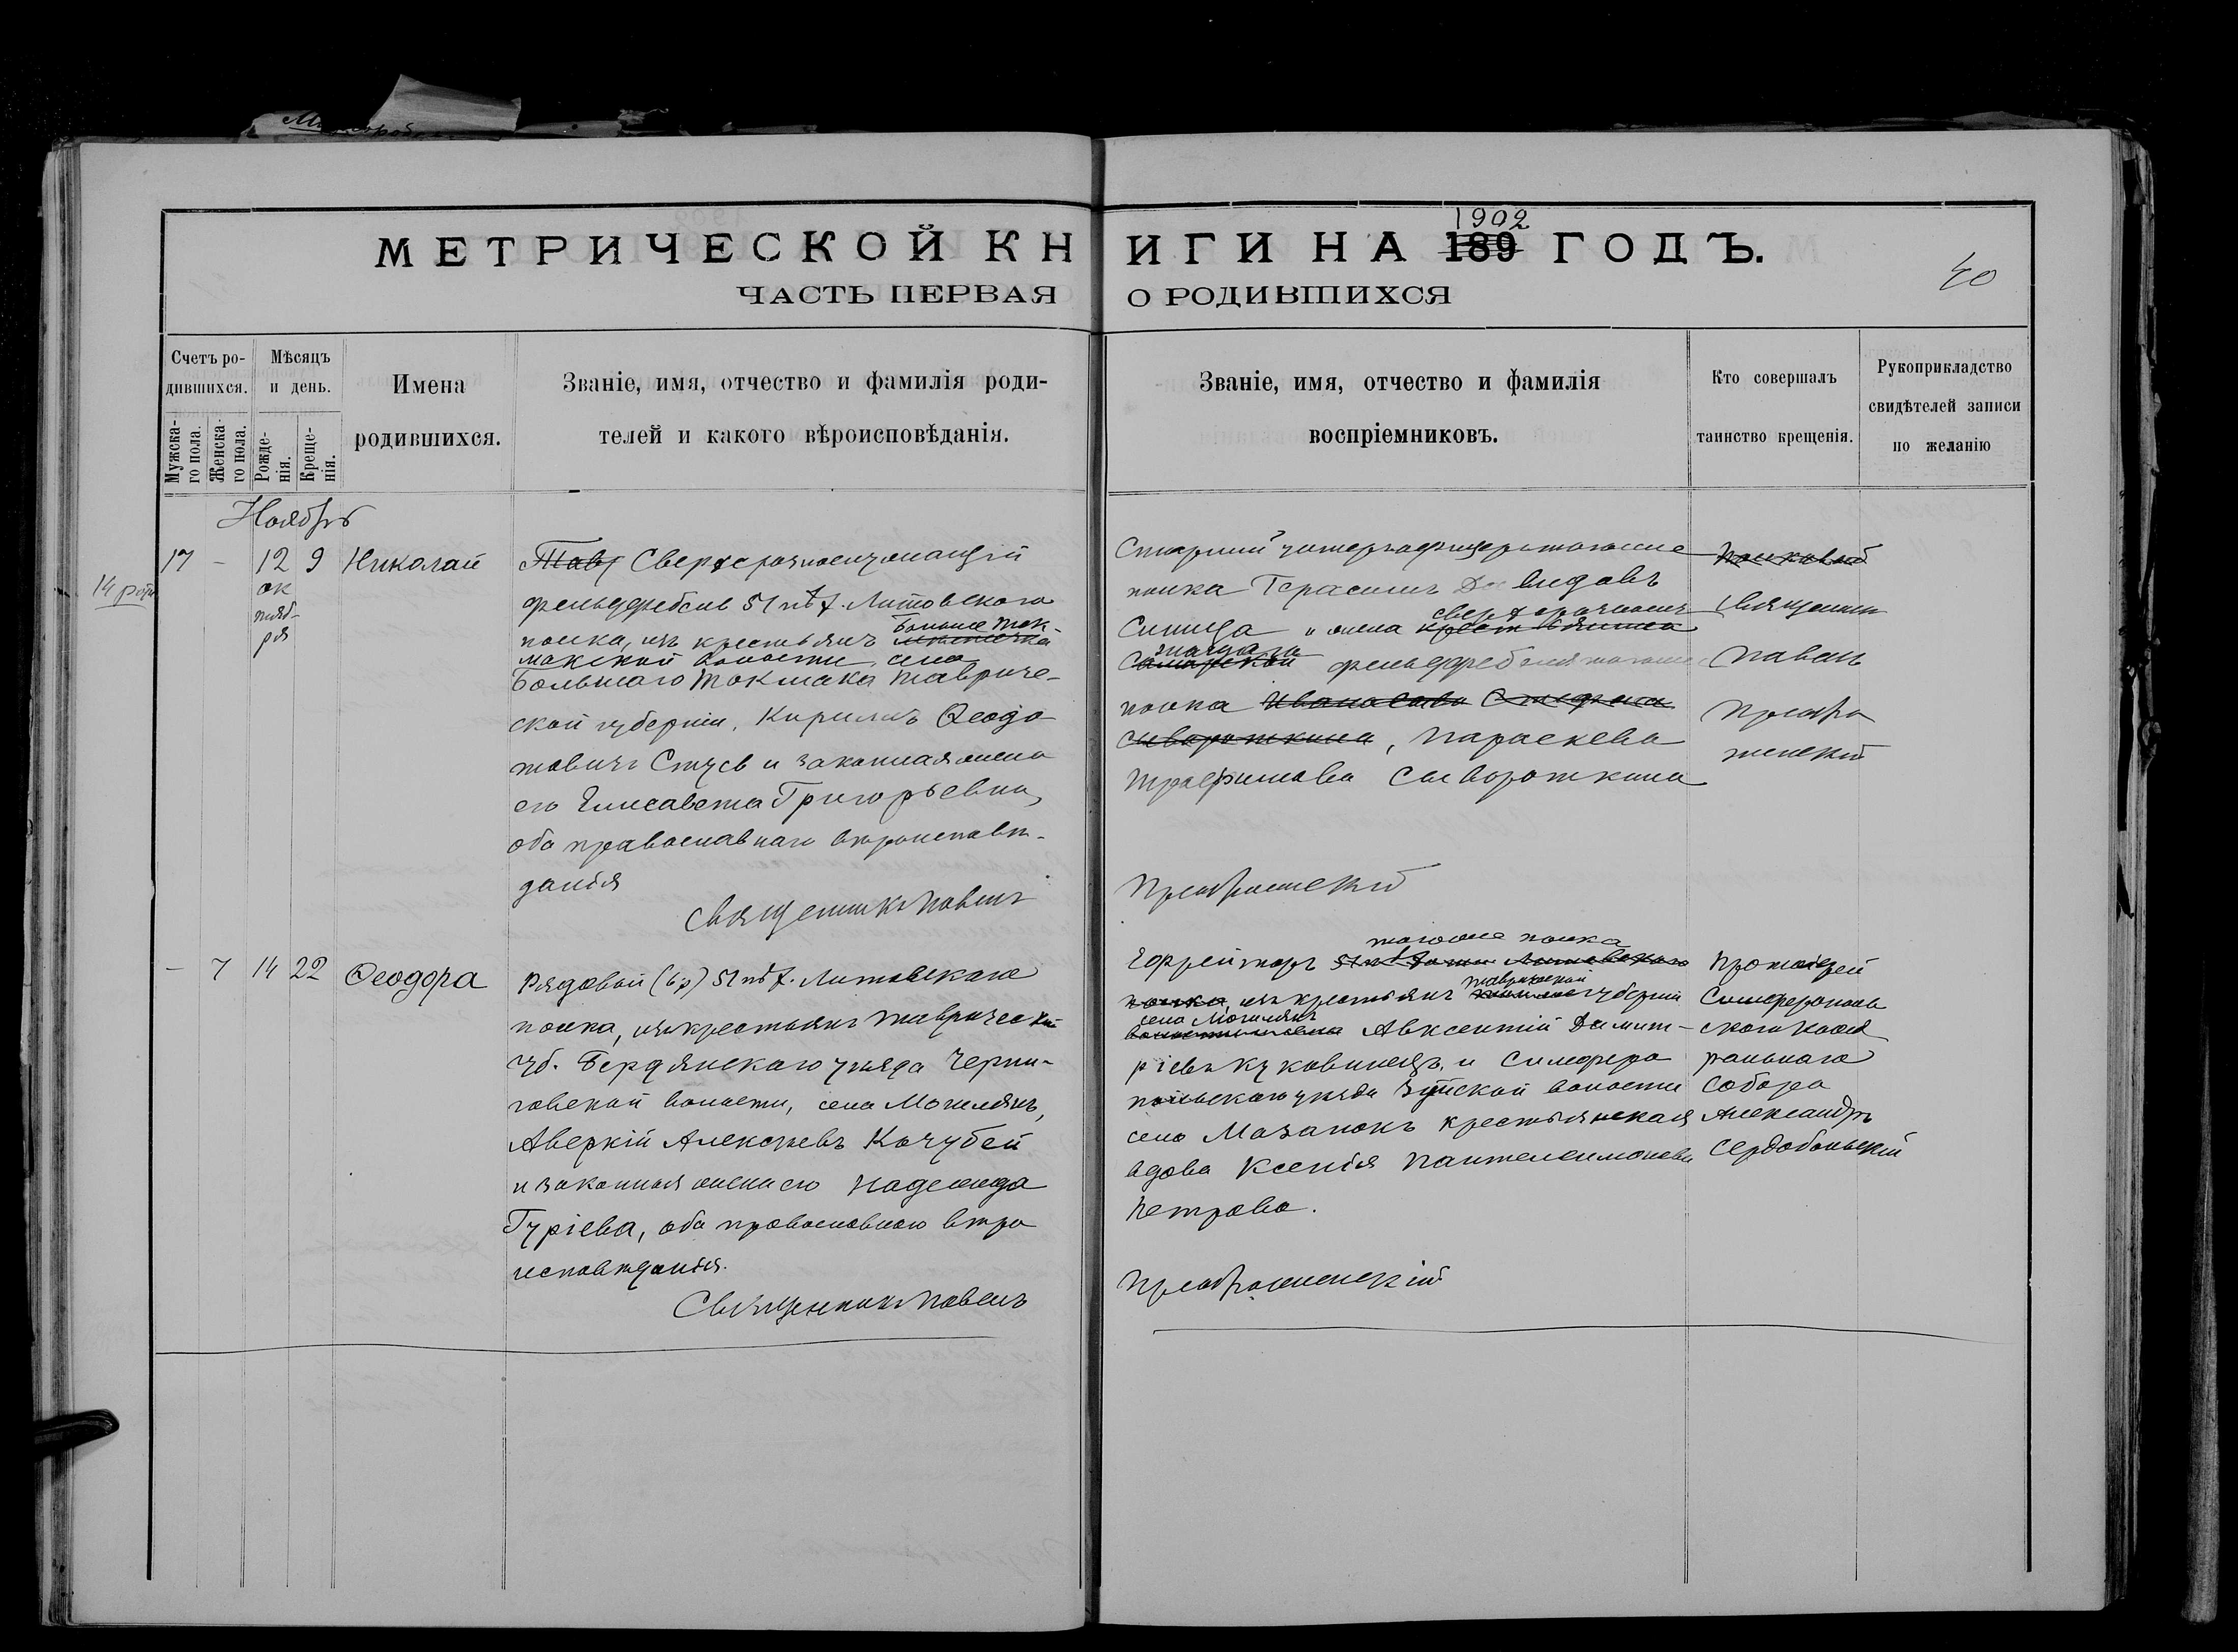 МЕТРИЧЕСКОЙ КНИГИ НА 189 ГОДЪ.
1902
ЧАСТЬ ПЕРВАЯ О РОДИВШИХСЯ
40
Счетъ родившихся.
Мѣсяцъ и день.
Мужскаго пола.
Женскаго пола.
Рожденія.
Крещенія.
Имена родившихся.
Званіе, имя, отчество и фамилія родителей и какого вѣроисповѣданія.
Званіе, имя, отчество и фамилія воспріемниковъ.
Кто совершалъ таинство крещенія.
Рукоприкладство свидѣтелей записи по желанію
Ноябрь
17 - 12 9 Николай
октября
Тавр Сверхсрочнослужащій
фельдфебель 51 пѣх. Литовскаго
полка, изъ крестьянъ
Больше Ток-
макской волости, села
Большаго Токмака Тавриче-
ской губерніи, Кириллъ Ѳеодо
товичъ Стусь и законная жена
его Елисавета Григорьевна,
оба православнаго вѣроисповѣ-
данія
Священникъ Павелъ
Старшій унтеръ-офицеръ тогоже
полка Герасимъ Давидовъ
Синица и жена
сверхсрочнослу
жащаго
фельдфебеля тогоже
полка Ивана Сава Стефана
Сывороткина, Параскева
Трофимова Сывороткина
Преображенскій
Полковой
Священникъ
Павелъ
Преобра
женскій
- 7 14 22 Ѳеодора
Рядовой (бр) 51 пѣх. Литовскаго
полка, изъ крестьянъ Таврической
губ. Бердянскаго уѣзда Черни-
говской волости, села Могилянъ,
Аверкій Алексѣевъ Кочубей
и законная жена его Надежда
Гуріева, оба православнаго вѣро
исповѣданія.
Священникъ Павелъ
Ефрейторъ 51 пѣхотн Литовскаго
тогоже полка
полка, изъ крестьянъ Таврической губерніи
села Могилянъ
Авксентій Димит-
ріевъ Куковинецъ, и Симферо
польскаго уѣзда Зуйской волости
села Мазанокъ крестьянская
вдова Ксенія Пантелеимонова
Петрова.
Преображенскій
Протоіерей
Симферополь
скаго Каѳед
ральнаго
Собора
Александръ
Сердобольскій